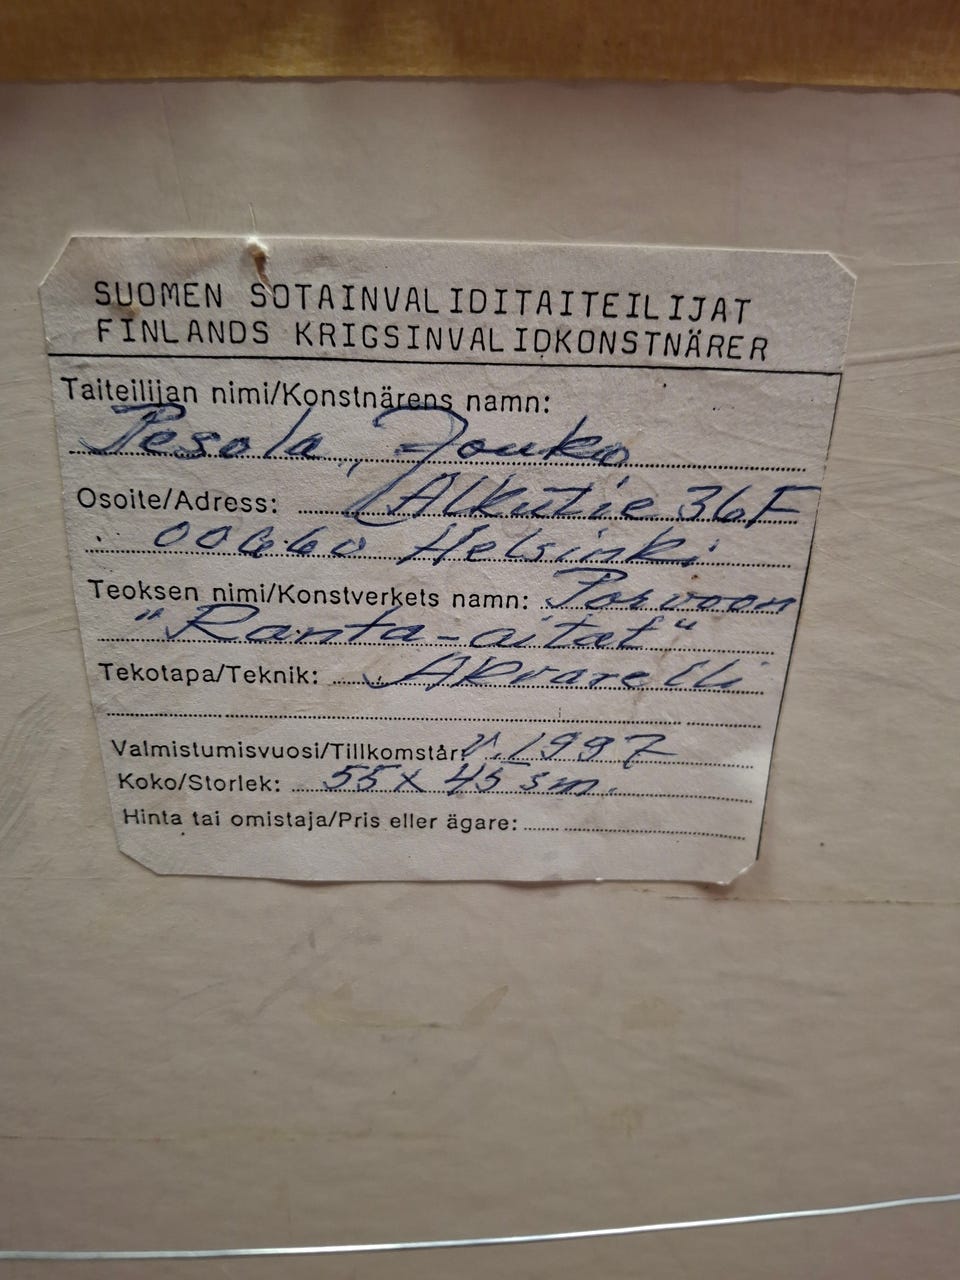 SUOMEN SOTAINVALIDITAITEILIJAT
FINLANDS KRIGSINVALIDKONSTNÄRER
Taiteilijan nimi/Konstnärens namn:
Pesola, Jouko
Osoite/Adress: Alkutie 36 F
00660 Helsinki
Teoksen nimi/Konstverkets namn: Porvoon
"Ranta-aitat"
Tekotapa/Teknik: Akvarelli
Valmistumisvuosi/Tillkomstår: v. 1997
Koko/Storlek: 55 x 45 sm.
Hinta tai omistaja/Pris eller ägare: